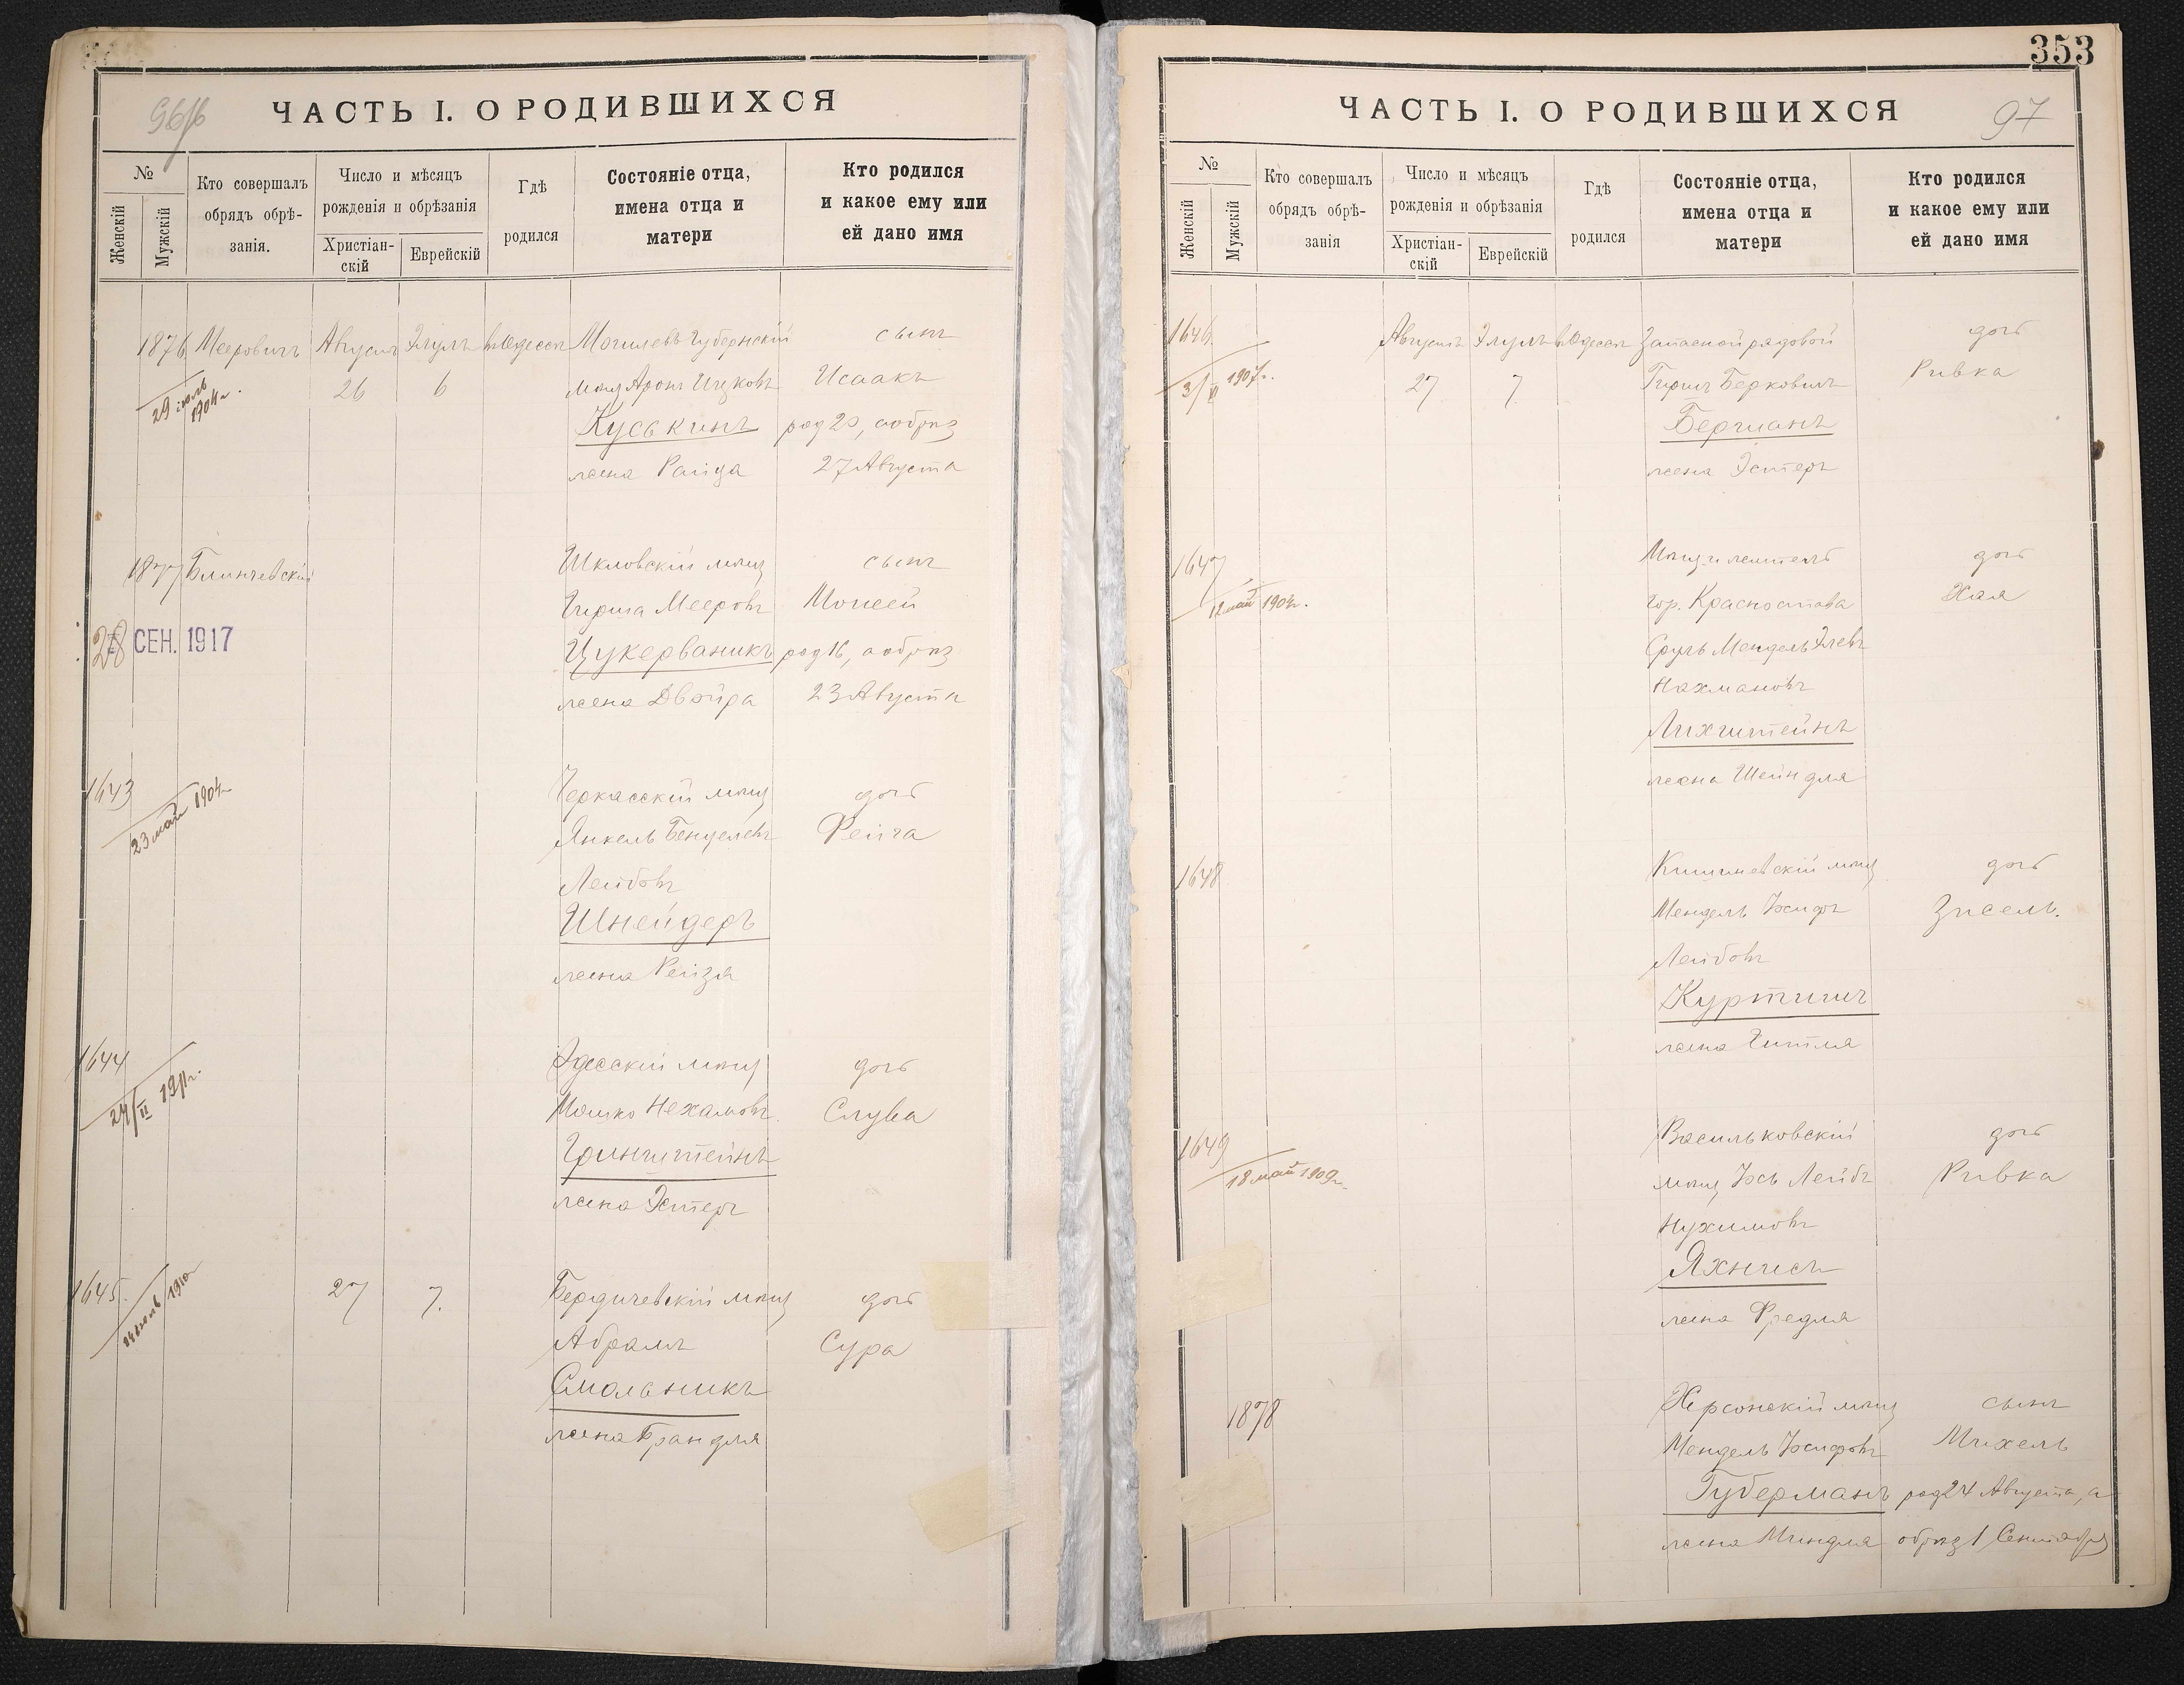 96об
ЧАСТЬ I. О РОДИВШИХСЯ
№
Женскій
Мужскій
Кто совершалъ
обрядъ обрѣ-
занія.
Число и мѣсяцъ
рожденія и обрѣзанія
Христіан-
скій
Еврейскій
Гдѣ
родился
Состояніе отца,
имена отца и
матери
Кто родился
и какое ему или
ей дано имя
1876 Мееровичъ Августъ Элулъ въ Одессѣ Могилевъ Губернскій сынъ
29 1904 г. 26 6 мѣщ Аронъ Ицковъ Исаакъ
Куськинъ род 20, а обрѣз
жена Раида 27 Августа
1877 Блинчевскій Шкловскій мѣщ сынъ
Гирша Мееровъ Моисей
28 СЕН. 1917 Цукерваникъ род 16, а обрѣз
жена Двойра 23 Августа
1643 Черкасскій мѣщ дочь
23 май 1904 г Янкель Бенцелевъ Фейга
Лейбовъ
Шнейдеръ
жена Рейзя
1644 Одесскій мѣщ дочь
24/II 1911 г. Мошко Нехамовъ Слува
Гринштейнъ
жена Эстеръ
1645. 27 7. Бердичевскій мѣщ дочь
1910 Абрамъ Сура
Смольникъ
жена Брандля
353
97
ЧАСТЬ I. О РОДИВШИХСЯ
№
Женскій
Мужскій
Кто совершалъ
обрядъ обрѣ-
занія
Число и мѣсяцъ
рожденія и обрѣзанія
Христіан-
скій
Еврейскій
Гдѣ
родился
Состояніе отца,
имена отца и
матери
Кто родился
и какое ему или
ей дано имя
1646 Августъ Элулъ въ Одессѣ Запасной рядовой дочь
1907 г. 27 7 Гиршъ Берковичъ Ривка
Бергманъ
жена Эстеръ
1647 дочь
12 май 1904 г. гор. Красностава Хая
Сруль Мендель Элевъ
Нахмановъ
Лихтштейнъ
жена Шейндля
1648 Кишиневскій мѣщ дочь
Мендель Іосифъ Зисель.
Лейбовъ
Куртшигъ
жена Гитля
1649 Васильковскій дочь
18 май 1909 г. мѣщ Іось Лейбъ Ривка
Нухимовъ
Яхнисъ
жена Фредля
1878 Херсонскій мѣщ сынъ
Мендель Іосифовъ Михель
Губерманъ род 24 Августа, а
жена Миндля обрѣз 1 Сентября